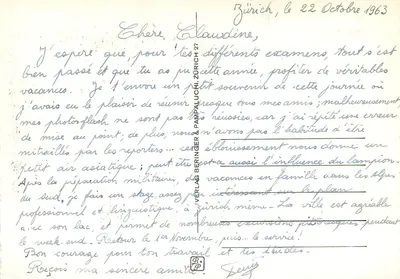 Zürich, le 22 Octobre 1963
Chère Claudine,
J'espère que, pour tes différents examens, tout s'est
bien passé et que tu as pu cette année, profiter de véritables
vacances. Je t'envoie un petit souvenir de cette journée où
j'avais eu le plaisir de réunir presque tous mes amis; malheureusement,
mes photos flash ne sont pas réussies, car j'ai répété une erreur
de mise au point, de plus, nous n'avons pas l'habitude d'être
mitraillés par les reporters... éblouissement nous donne un
petit air asiatique; peut être aussi l'influence du lampion.
Après la préparation militaire, vacances en famille dans les Alpes
du sud, je fais un stage assez intéressant sur le plan
professionnel et linguistique, à Zürich même. La ville est agréable
avec son lac, et permet de nombreuses excursions pittoresques pendant
le week end. Retour le 1er Novembre, puis le service!
Bon courage pour ton travail et tes études.
Reçois ma sincère amitié
VERLAG BERINGER & PAMPALUCHI, ZÜRICH 27